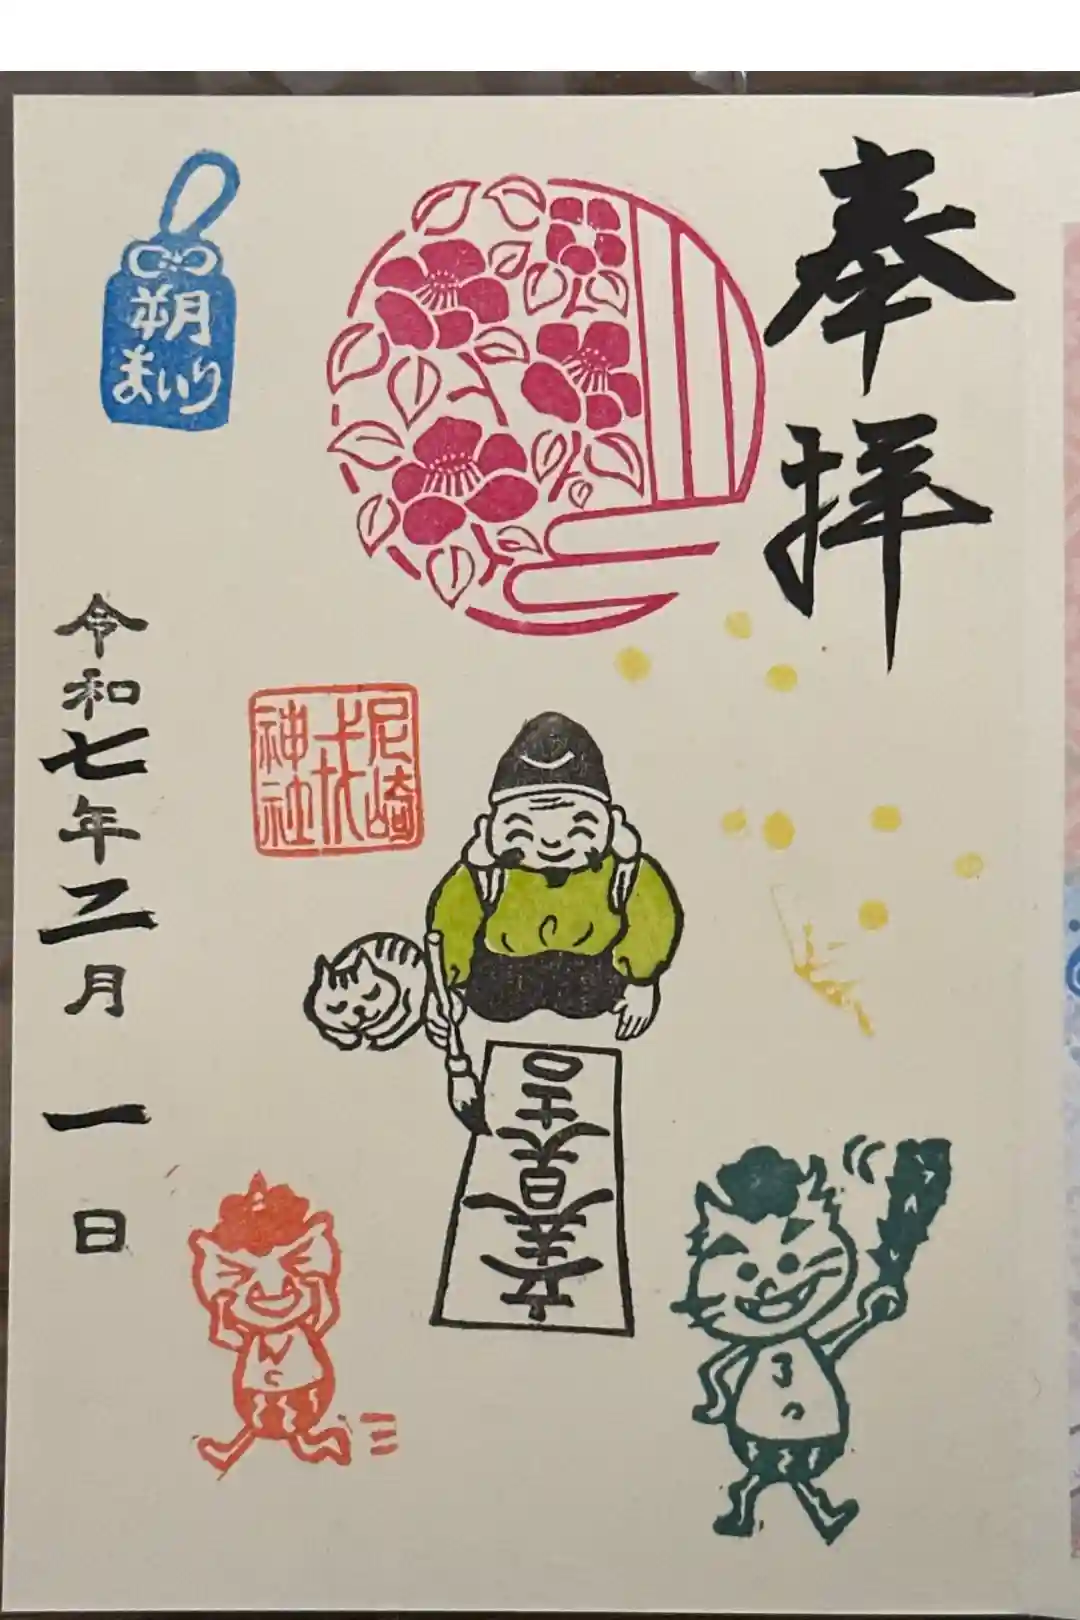 奉拝
立春大吉
尼崎
戎
神社
朔
まいり
令和七年二月一日